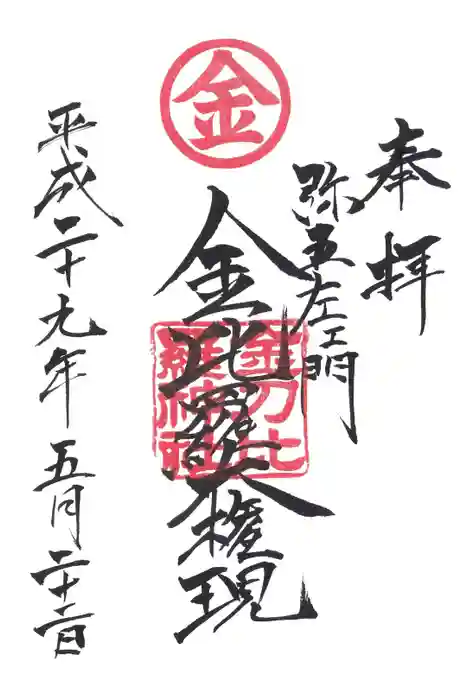 金
奉拝
弥五左エ門
金比羅大権現
金刀比
羅神社
平成二十九年五月二十二日